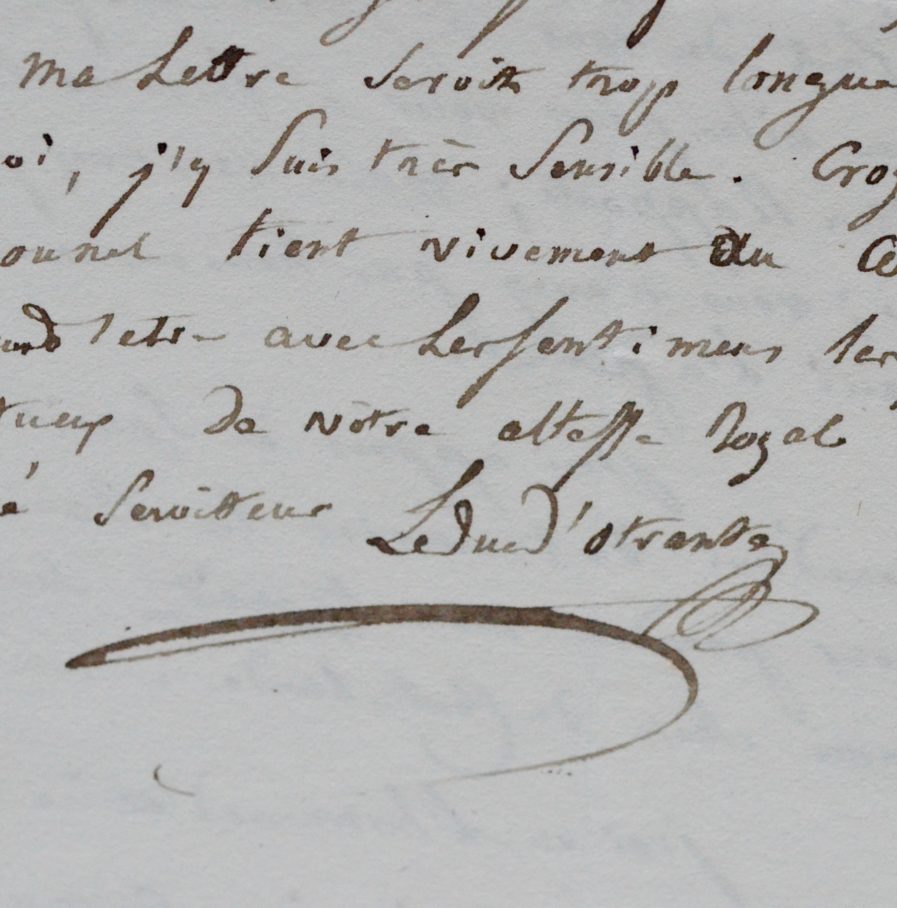 ma Lettre seroit trop longue
oi, j'y suis très sensible. Croy
tient vivement au
avec Les sentimens les
tueux de vôtre altesse Royale
é serviteur Le Duc d'otrante